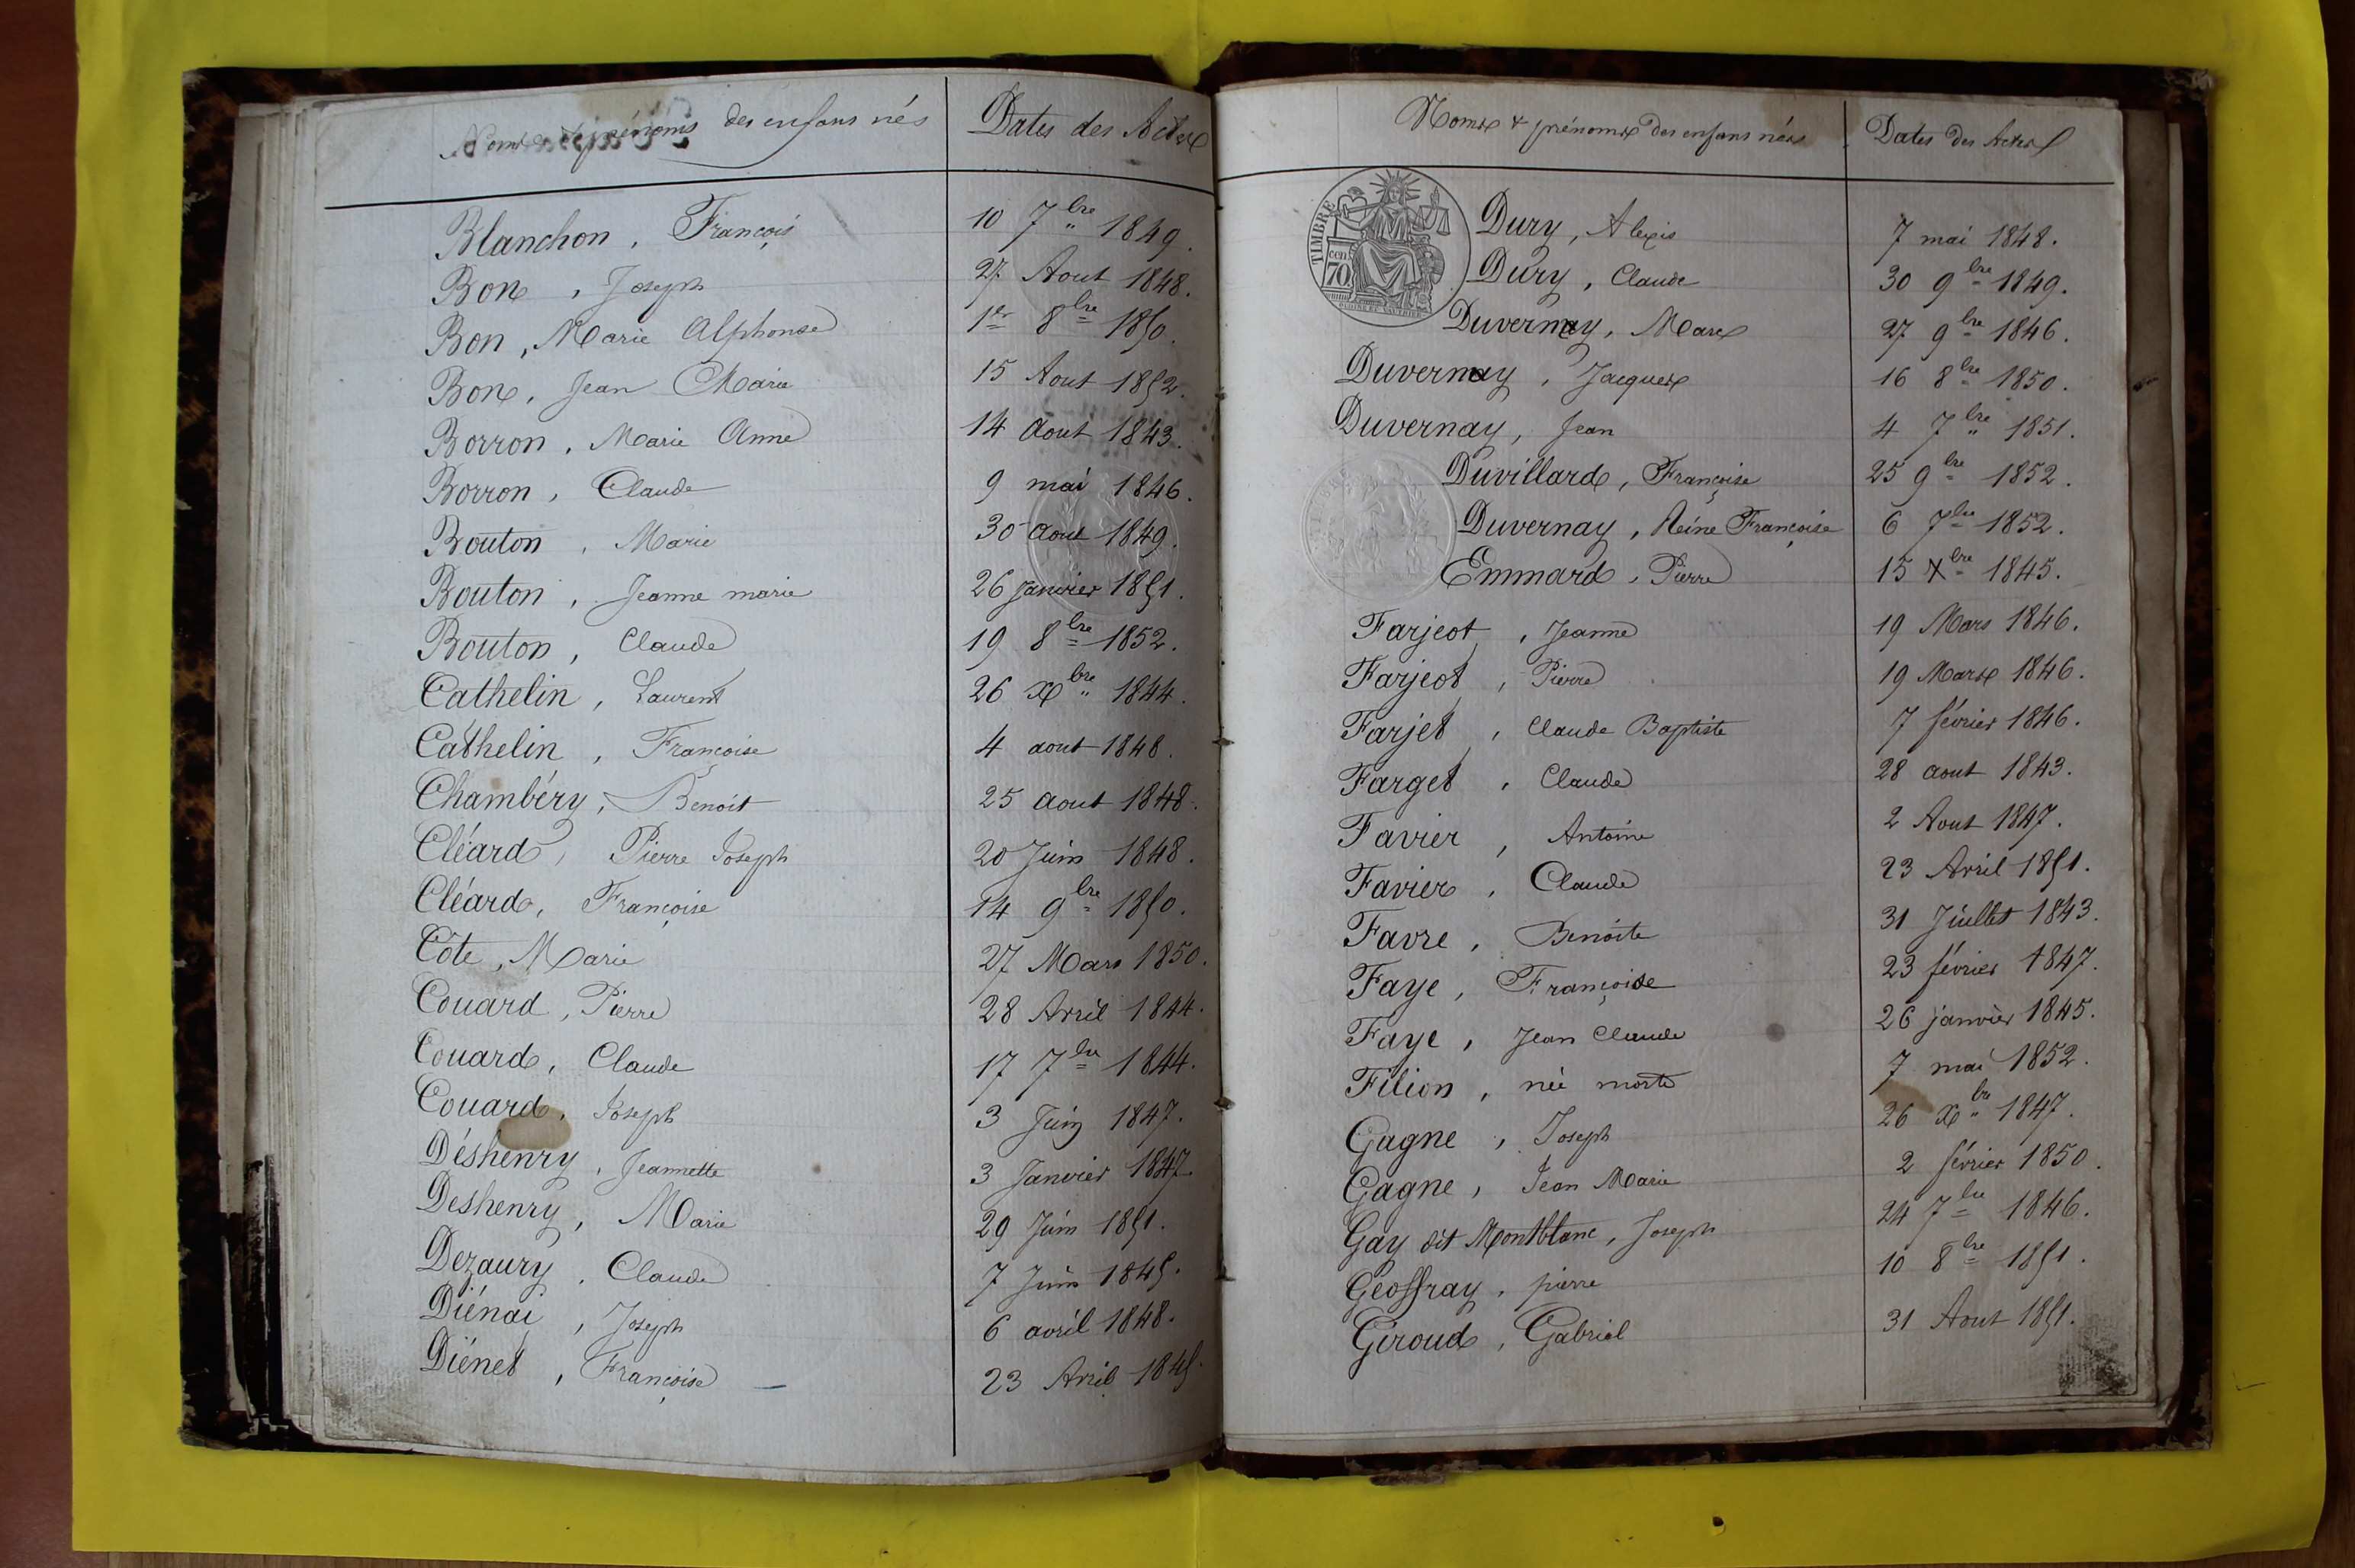 Noms & prénoms des enfans nés
Dates des Actes
Blanchon, François 10 7bre 1849.
Bon, Joseph 27 Aout 1848.
Bon, Marie Alphonse 1er 8bre 1850.
Bon, Jean Marie 15 Aout 1852.
Borron, Marie Anne 14 Aout 1843.
Borron, Claude 9 mai 1846.
Bouton, Marie 30 Aout 1849.
Bouton, Jeanne marie 26 Janvier 1851.
Bouton, Claude 19 8bre 1852.
Cathelin, Laurent 26 Xbre 1844.
Cathelin, Françoise 4 aout 1848.
Chambéry, Benoit 25 aout 1848.
Cléard, Pierre Joseph 20 Juin 1848.
Cléard, Françoise 14 9bre 1850.
Côte, Marie 27 Mars 1850.
Couard, Pierre 28 Avril 1844.
Couard, Claude 17 7bre 1844.
Couard, Joseph 3 Juin 1847.
Déshenry, Jeannette 3 Janvier 1847.
Deshenry, Marie 29 Juin 1851.
Dezaury, Claude 7 Juin 1845.
Diénai, Joseph 6 avril 1848.
Diénet, Françoise 23 Avril 1845.
Noms & prénoms des enfans nés
Dates des Actes
TIMBRE
70 cen
Dury, Alexis 7 mai 1848.
Dury, Claude 30 9bre 1849.
Duvernay, Marc 27 9bre 1846.
Duvernay, Jacques 16 8bre 1850.
Duvernay, Jean 4 7bre 1851.
Duvillard, Françoise 25 9bre 1852.
Duvernay, Reine Françoise 6 7bre 1852.
Emmard, Pierre 15 Xbre 1845.
Farjeot, Jeanne 19 Mars 1846.
Farjeot, Pierre 19 Mars 1846.
Farjet, Claude Baptiste 7 février 1846.
Farget, Claude 28 aout 1843.
Favier, Antoine 2 Aout 1847.
Favier, Claude 23 Avril 1851.
Favre, Benoite 31 Juillet 1843.
Faye, Françoise 23 février 1847.
Faye, Jean Claude 26 janvier 1845.
Filion, née morte 7 mai 1852.
Gagne, Joseph 26 Xbre 1847.
Gagne, Jean Marie 2 février 1850.
Gay dit Montblanc, Joseph 24 7bre 1846.
Geoffray, pierre 10 8bre 1851.
Giroud, Gabriel 31 Aout 1851.